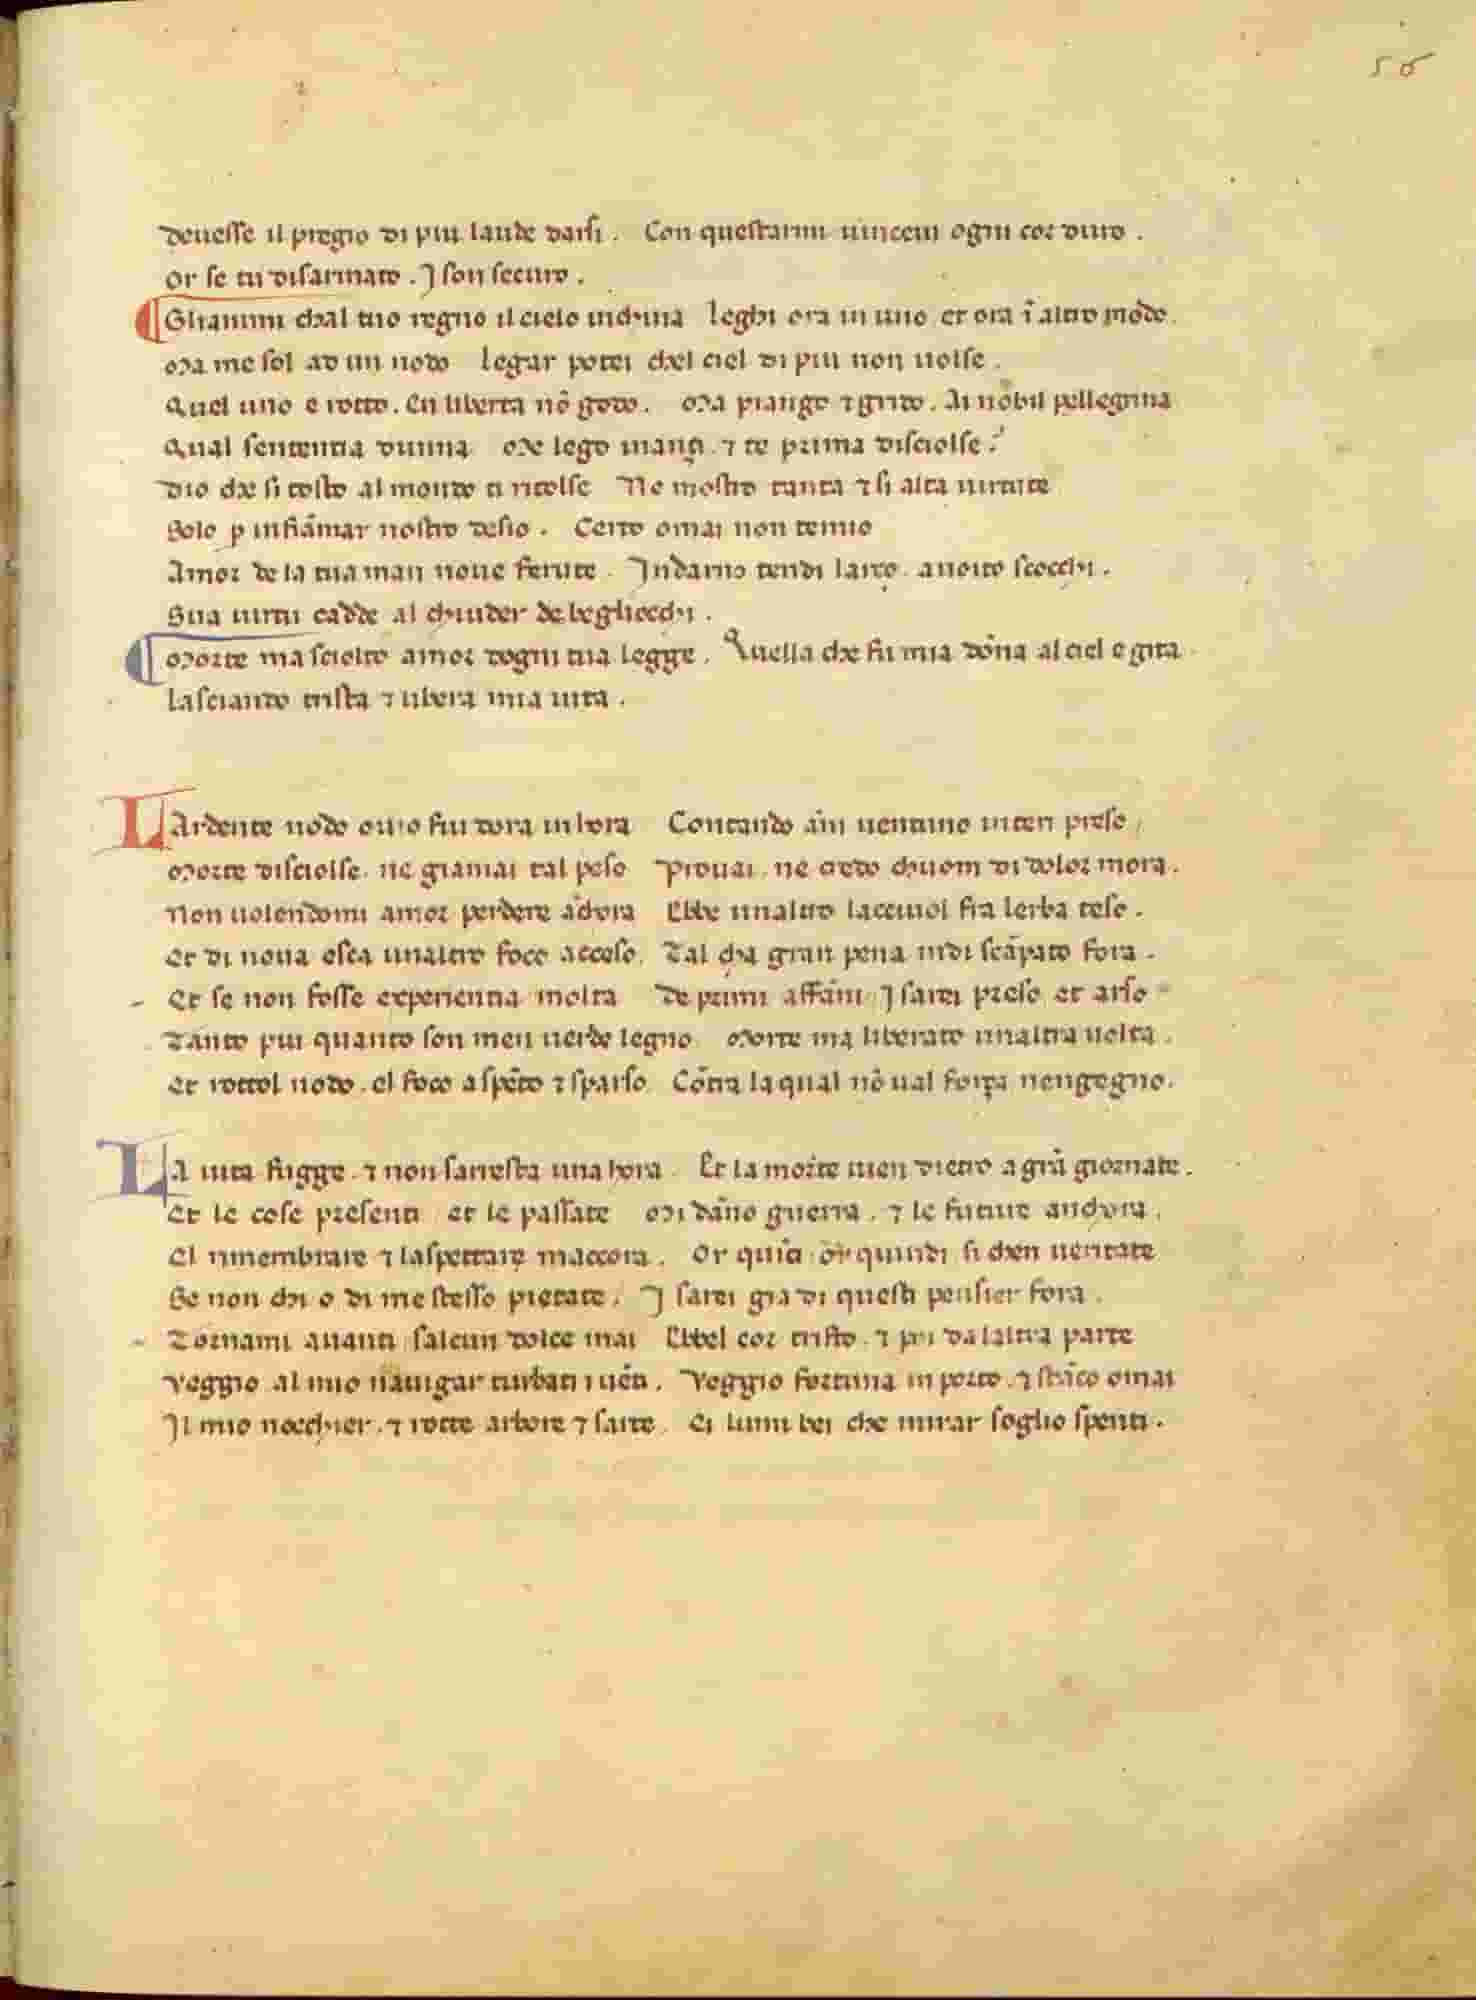 56
Devesse il pregio di piu laude darsi. Con questarmi vincevi ogni cor duro.
Or se tu disarmato. I son securo.
Glianimi chal tuo regno il cielo inchina leghi ora in uno et ora ĩ altro modo.
Ma me sol ad un nodo legar potei chel ciel di piu non volse.
Quel uno e rotto. En liberta nõ godo. Ma piango ⁊ grido. Ai nobil pellegrina
Qual sententia divina Me lego inançi. ⁊ te prima disciolse?
Dio che si tosto al mondo ti ritolse Ne mostro tanta ⁊ si alta virtute
Solo p infiãmar nostro desio. Certo omai non temio
Amor de la tua man nove ferute. Indarno tendi larco. a voito scocchi.
Sua virtu cadde al chiuder de begliocchi.
Morte ma sciolto amor dogni tua legge. Quella che fu mia dõna al ciel e gita
Lasciando trista ⁊ libera mia vita.
LArdente nodo ovio fui dora in hora Contando ãni ventuno interi preso/
Morte disciolse. ne giamai tal peso Provai. ne credo chuom di dolor mora.
Non volendomi amor perdere achora Ebbe unaltro lacciuol fra lerba teso.
Et di nova esca unaltro foco acceso. Tal cha gran pena indi scãpato fora.
Et se non fosse experientia molta De primi affãni I sarei preso et arso
Tanto piu quanto son men verde legno Morte ma liberato unaltra volta.
Et rottol nodo. el foco a spẽto ⁊ sparso Cõtra laqual nõ val força nengegno.
LA vita fugge. ⁊ non sarresta una hora. Et la morte vien dietro a grã giornate.
Et le cose presenti et le passate Mi dãno guerra. ⁊ le future anchora.
El rimembrare ⁊ laspettare maccora. Or quĩci or quindi si chen veritate
Se non chi o di me stesso pietate. I sarei gia di questi pensier fora.
Tornami avanti salcun dolce mai Ebbel cor tristo. ⁊ poi da laltra parte
Veggio al mio navigar turbati i vẽti. Veggio fortuna in porto. ⁊ stãco omai
Il mio nocchier. ⁊ rotte arbore ⁊ sarte. Ei lumi bei che mirar soglio spenti.